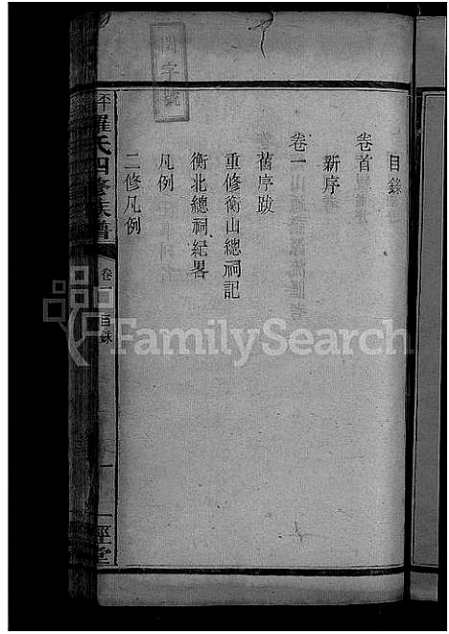 目錄
卷首
新序
卷一
舊序跋
重修衡山總祠記
衡北總祠紀畧
凡例
二修凡例
羅氏四修族譜
卷一
目錄
一
一經堂
FamilySearch